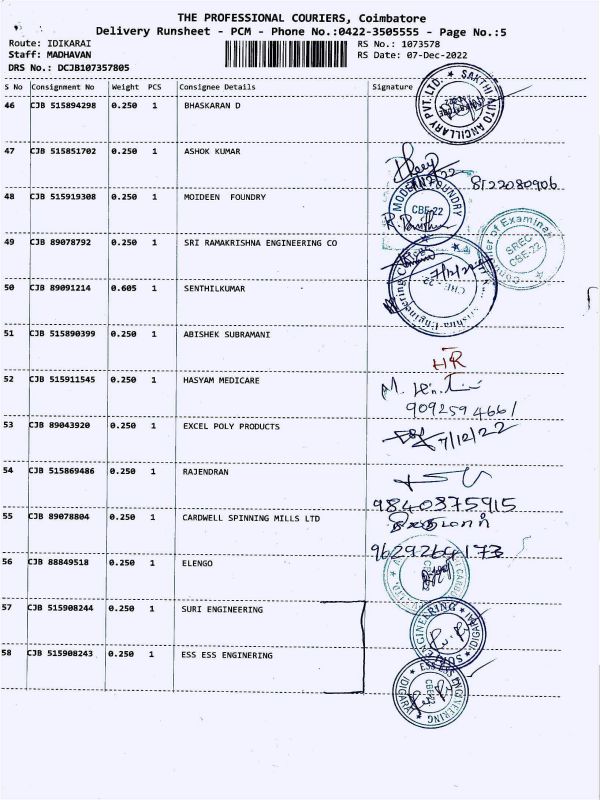 THE PROFESSIONAL COURIERS, Coimbatore
Delivery Runsheet - PCM - Phone No.:0422-3505555 - Page No.:5
Route: IDIKARAI RS No.: 1073578
Staff: MADHAVAN RS Date: 07-Dec-2022
DRS No.: DCJB107357805
S No Consignment No Weight PCS Consignee Details Signature
46 CJB 515894298 0.250 1 BHASKARAN D
SAKTHI AUTO ANCILLARY PVT. LTD.
47 CJB 515851702 0.250 1 ASHOK KUMAR
8122080906
48 CJB 515919308 0.250 1 MOIDEEN FOUNDRY
MODERN FOUNDRY
CBE-22
49 CJB 89078792 0.250 1 SRI RAMAKRISHNA ENGINEERING CO
of Examina
SREC
CBE-22
7/12/22
50 CJB 89091214 0.605 1 SENTHILKUMAR
51 CJB 515890399 0.250 1 ABISHEK SUBRAMANI
HR
52 CJB 515911545 0.250 1 HASYAM MEDICARE
9092594661
53 CJB 89043920 0.250 1 EXCEL POLY PRODUCTS
7/12/22
54 CJB 515869486 0.250 1 RAJENDRAN
9840375915
55 CJB 89078804 0.250 1 CARDWELL SPINNING MILLS LTD
9629264173
56 CJB 88849518 0.250 1 ELENGO
57 CJB 515908244 0.250 1 SURI ENGINEERING
SURI ENGINEERING
IDIGARAI
58 CJB 515908243 0.250 1 ESS ESS ENGINERING
ESS ESS ENGINEERING
IDIGARAI
CBE-22